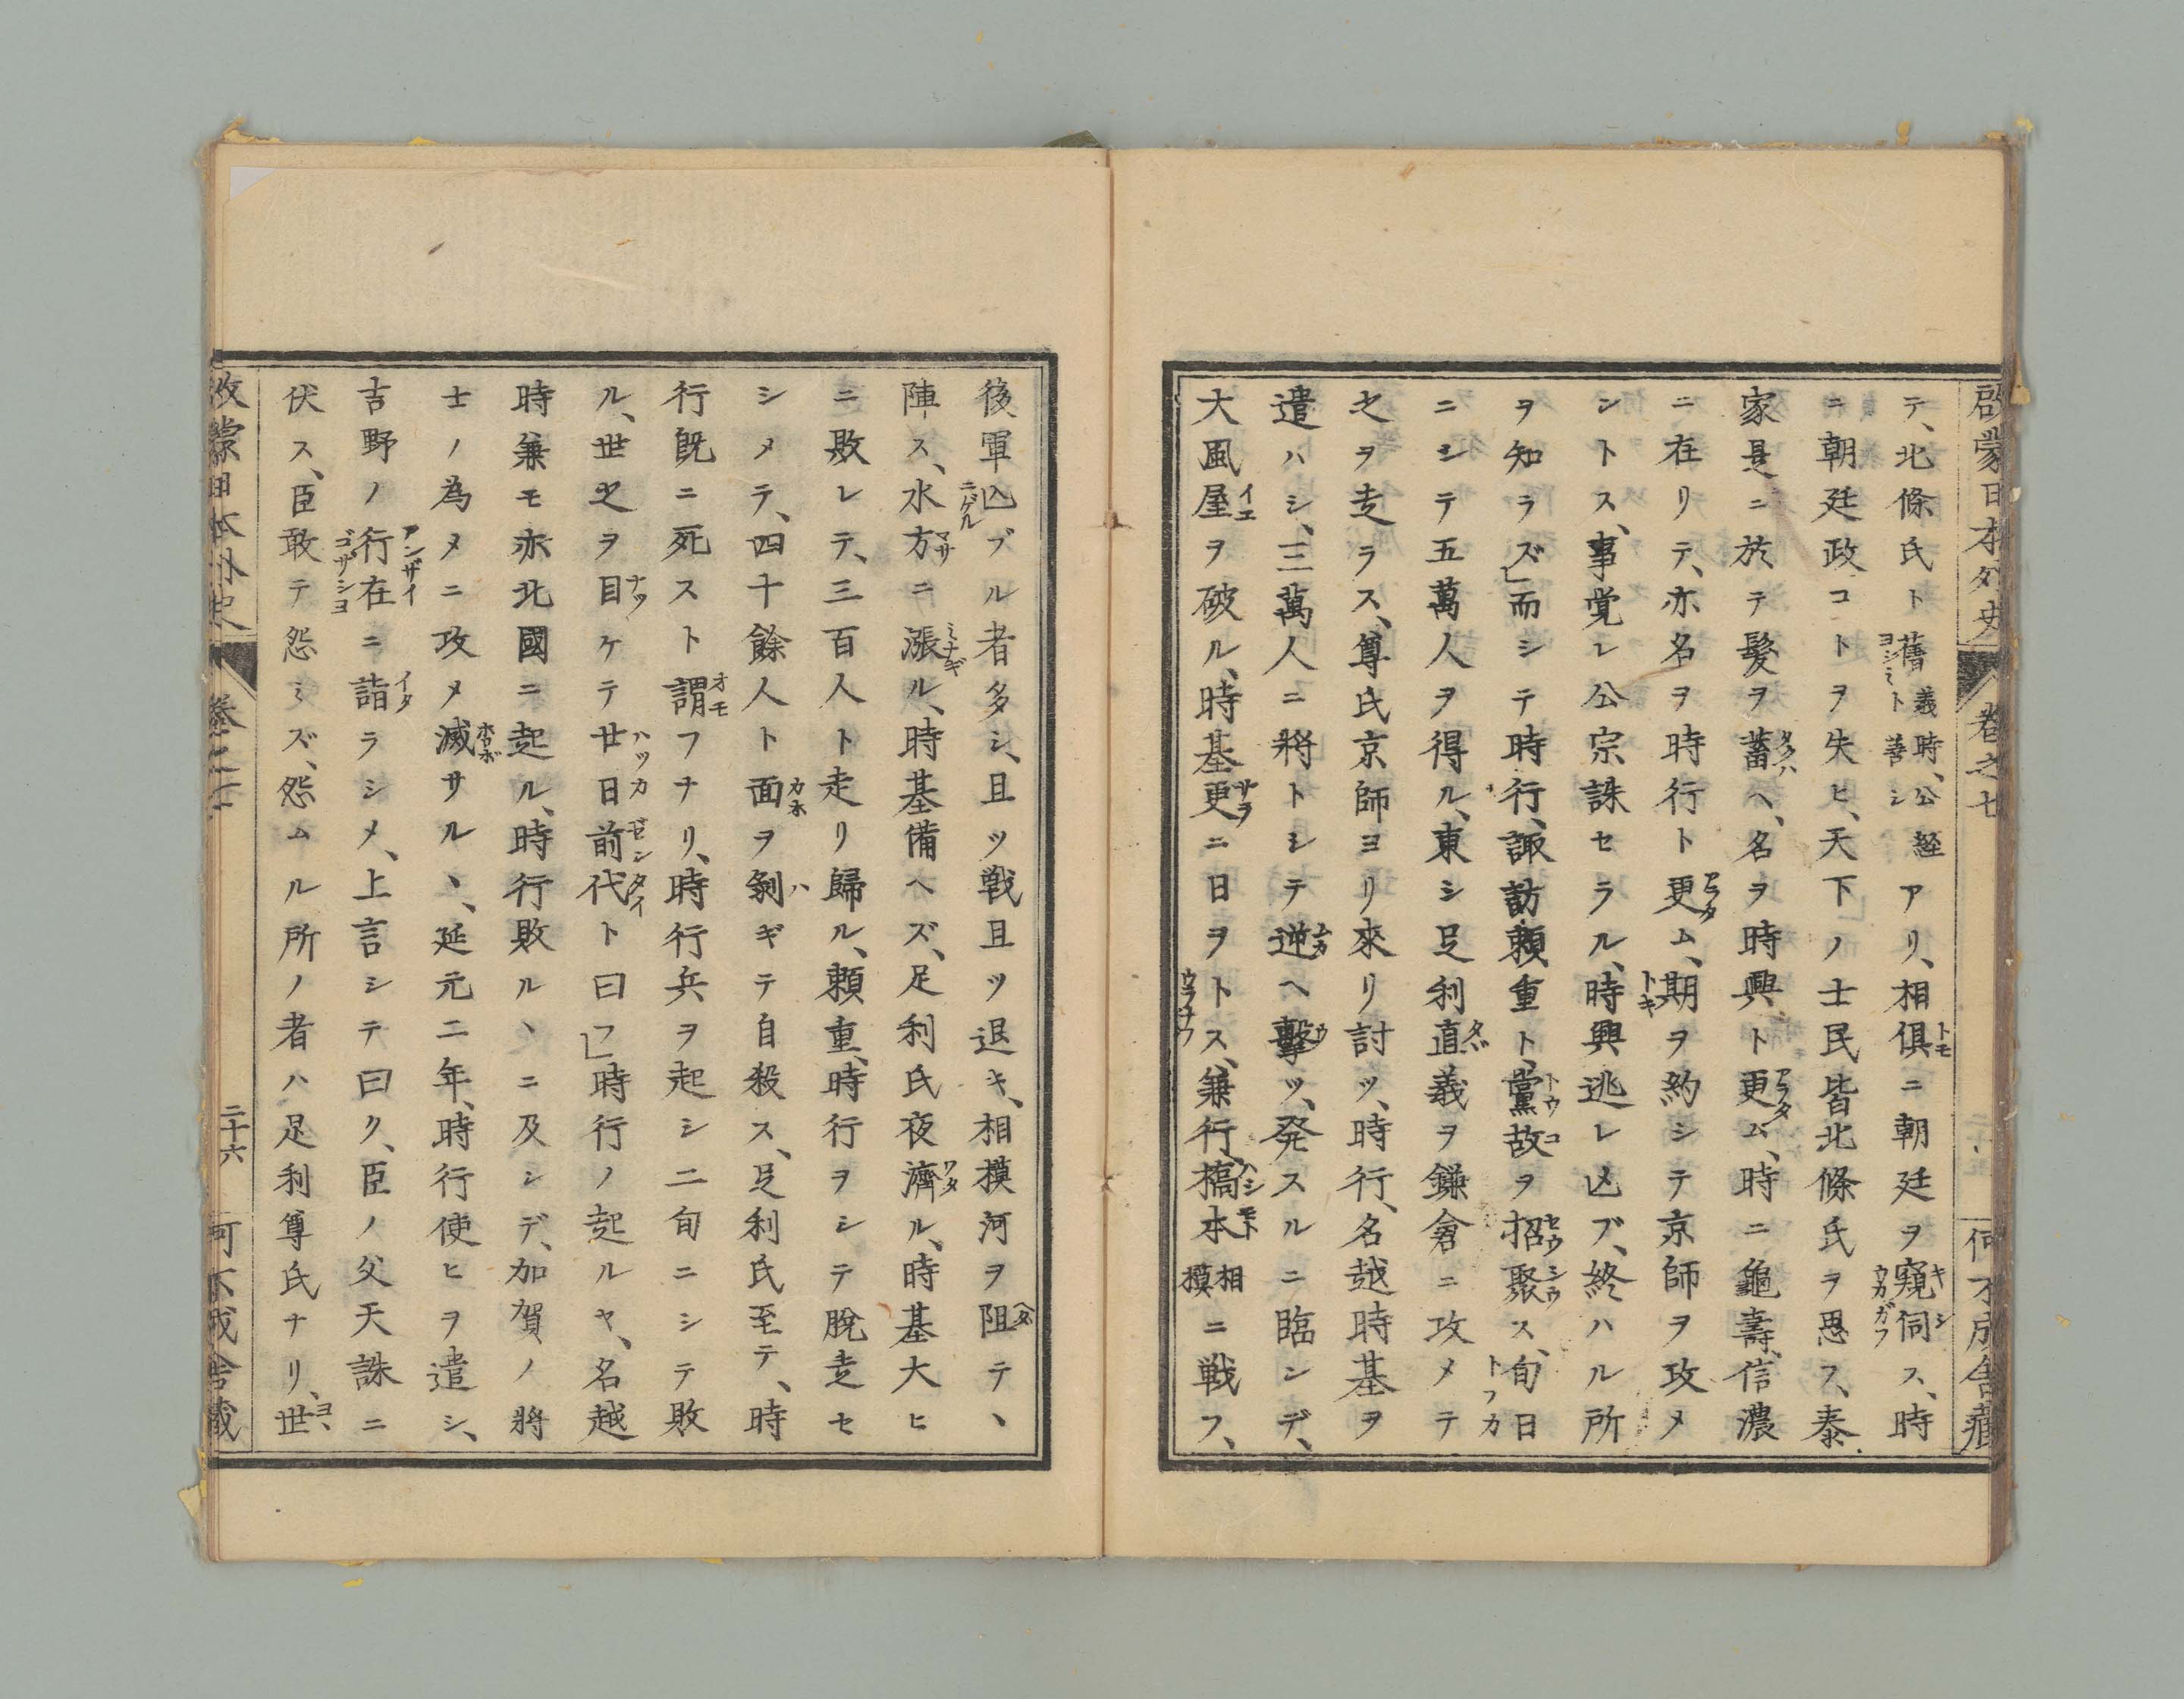 啓蒙日本外史 巻之七 何不成舎藏
テ、北條氏ト舊義時、公経ヨシミト善シアリ、相俱トモニ朝廷ヲ窺伺キシウカガフス、時
ニ朝廷政コトヲ失ヒ、天下ノ士民皆北條氏ヲ思フ、泰
家是ニ於テ髮ヲ蓄タクハヘ、名ヲ時興ト更アラタム、時ニ龜壽、信濃
ニ在リテ、亦名ヲ時行ト更アラタム、期トキヲ約シテ京師ヲ攻メ
ントス、事覚レ公宗誅セラル、時興逃レ亾ブ、終ハル所
ヲ知ラズ」而シテ時行、諏訪頼重ト、黨故トウコヲ招聚セウシウス、旬日トフカ
ニシテ五萬人ヲ得ル、東シ足利直タダ義ヲ鎌倉ニ攻メテ
之ヲ走ラス、尊氏京師ヨリ來リ討ツ、時行、名越時基ヲ
遣ハシ、三萬人ニ將トシテ逆ムカヘ擊ウツ、発スルニ臨ンデ、
大風屋イエヲ破ル、時基更サラニ日ヲトウラナフス、兼行、橋本ハシモト相模ニ戦フ、
後軍亾ニゲルブル者多シ、且ツ戦且ツ退キ、相摸河ヲ阻ヘダテヽ
陣ス、水方マサニ漲ミナギル、時基備ヘズ、足利氏夜濟ワタル、時基大ヒ
ニ敗レテ、三百人ト走リ歸ル、頼重、時行ヲシテ脫走セ
シメテ、四十餘人ト面カホヲ剝ハギテ自殺ス、足利氏至テ、時
行既ニ死スト謂オモフナリ、時行兵ヲ起シ二旬ニシテ敗
ル、世之ヲ目ナヅケテ廿日ハツカ前代ゼンダイト曰フ」時行ノ起ルヤ、名越
時兼モ亦北國ニ起ル、時行敗ルヽニ及シデ、加賀ノ將
士ノ為メニ攻メ滅ホロボサルヽ、延元二年、時行使ヒヲ遣シ、
吉野ノ行在アンザイゴザシヨニ詣イタラシメ、上言シテ曰ク、臣ノ父天誅ニ
伏ス、臣敢テ怨ミズ、怨ムル所ノ者ハ足利尊氏ナリ、世ヨヽ
啓蒙日本外史 巻之七 二十六 何不成舎藏